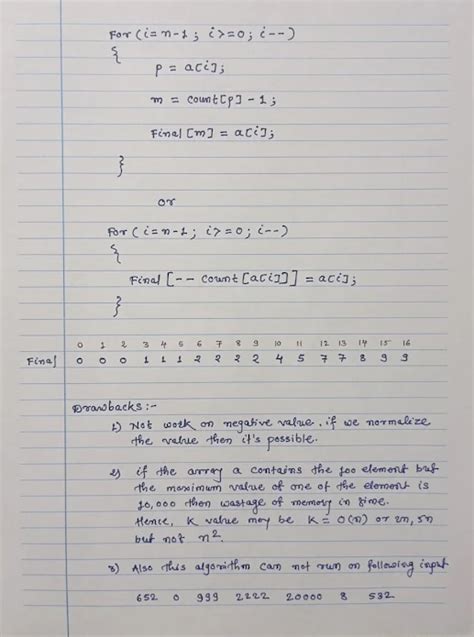 For (i=n-1; i>=0; i--)
{
p = a[i];
m = count[p] - 1;
Final [m] = a[i];
}
or
For (i=n-1; i>=0; i--)
{
Final [-- count [a[i]]] = a[i];
}
0 1 2 3 4 5 6 7 8 9 10 11 12 13 14 15 16
Final 0 0 0 1 1 1 2 2 2 2 4 5 7 7 8 9 9
Drawbacks :-
1) Not work on negative value. if we normalize
the value then it's possible.
2) if the array a contains the 100 element but
the maximum value of one of the element is
10,000 then wastage of memory in time.
Hence, K value may be K = O(n) or 2n, 5n
but not n².
3) Also this algorithm can not run on following input
652 0 999 2222 20000 8 532